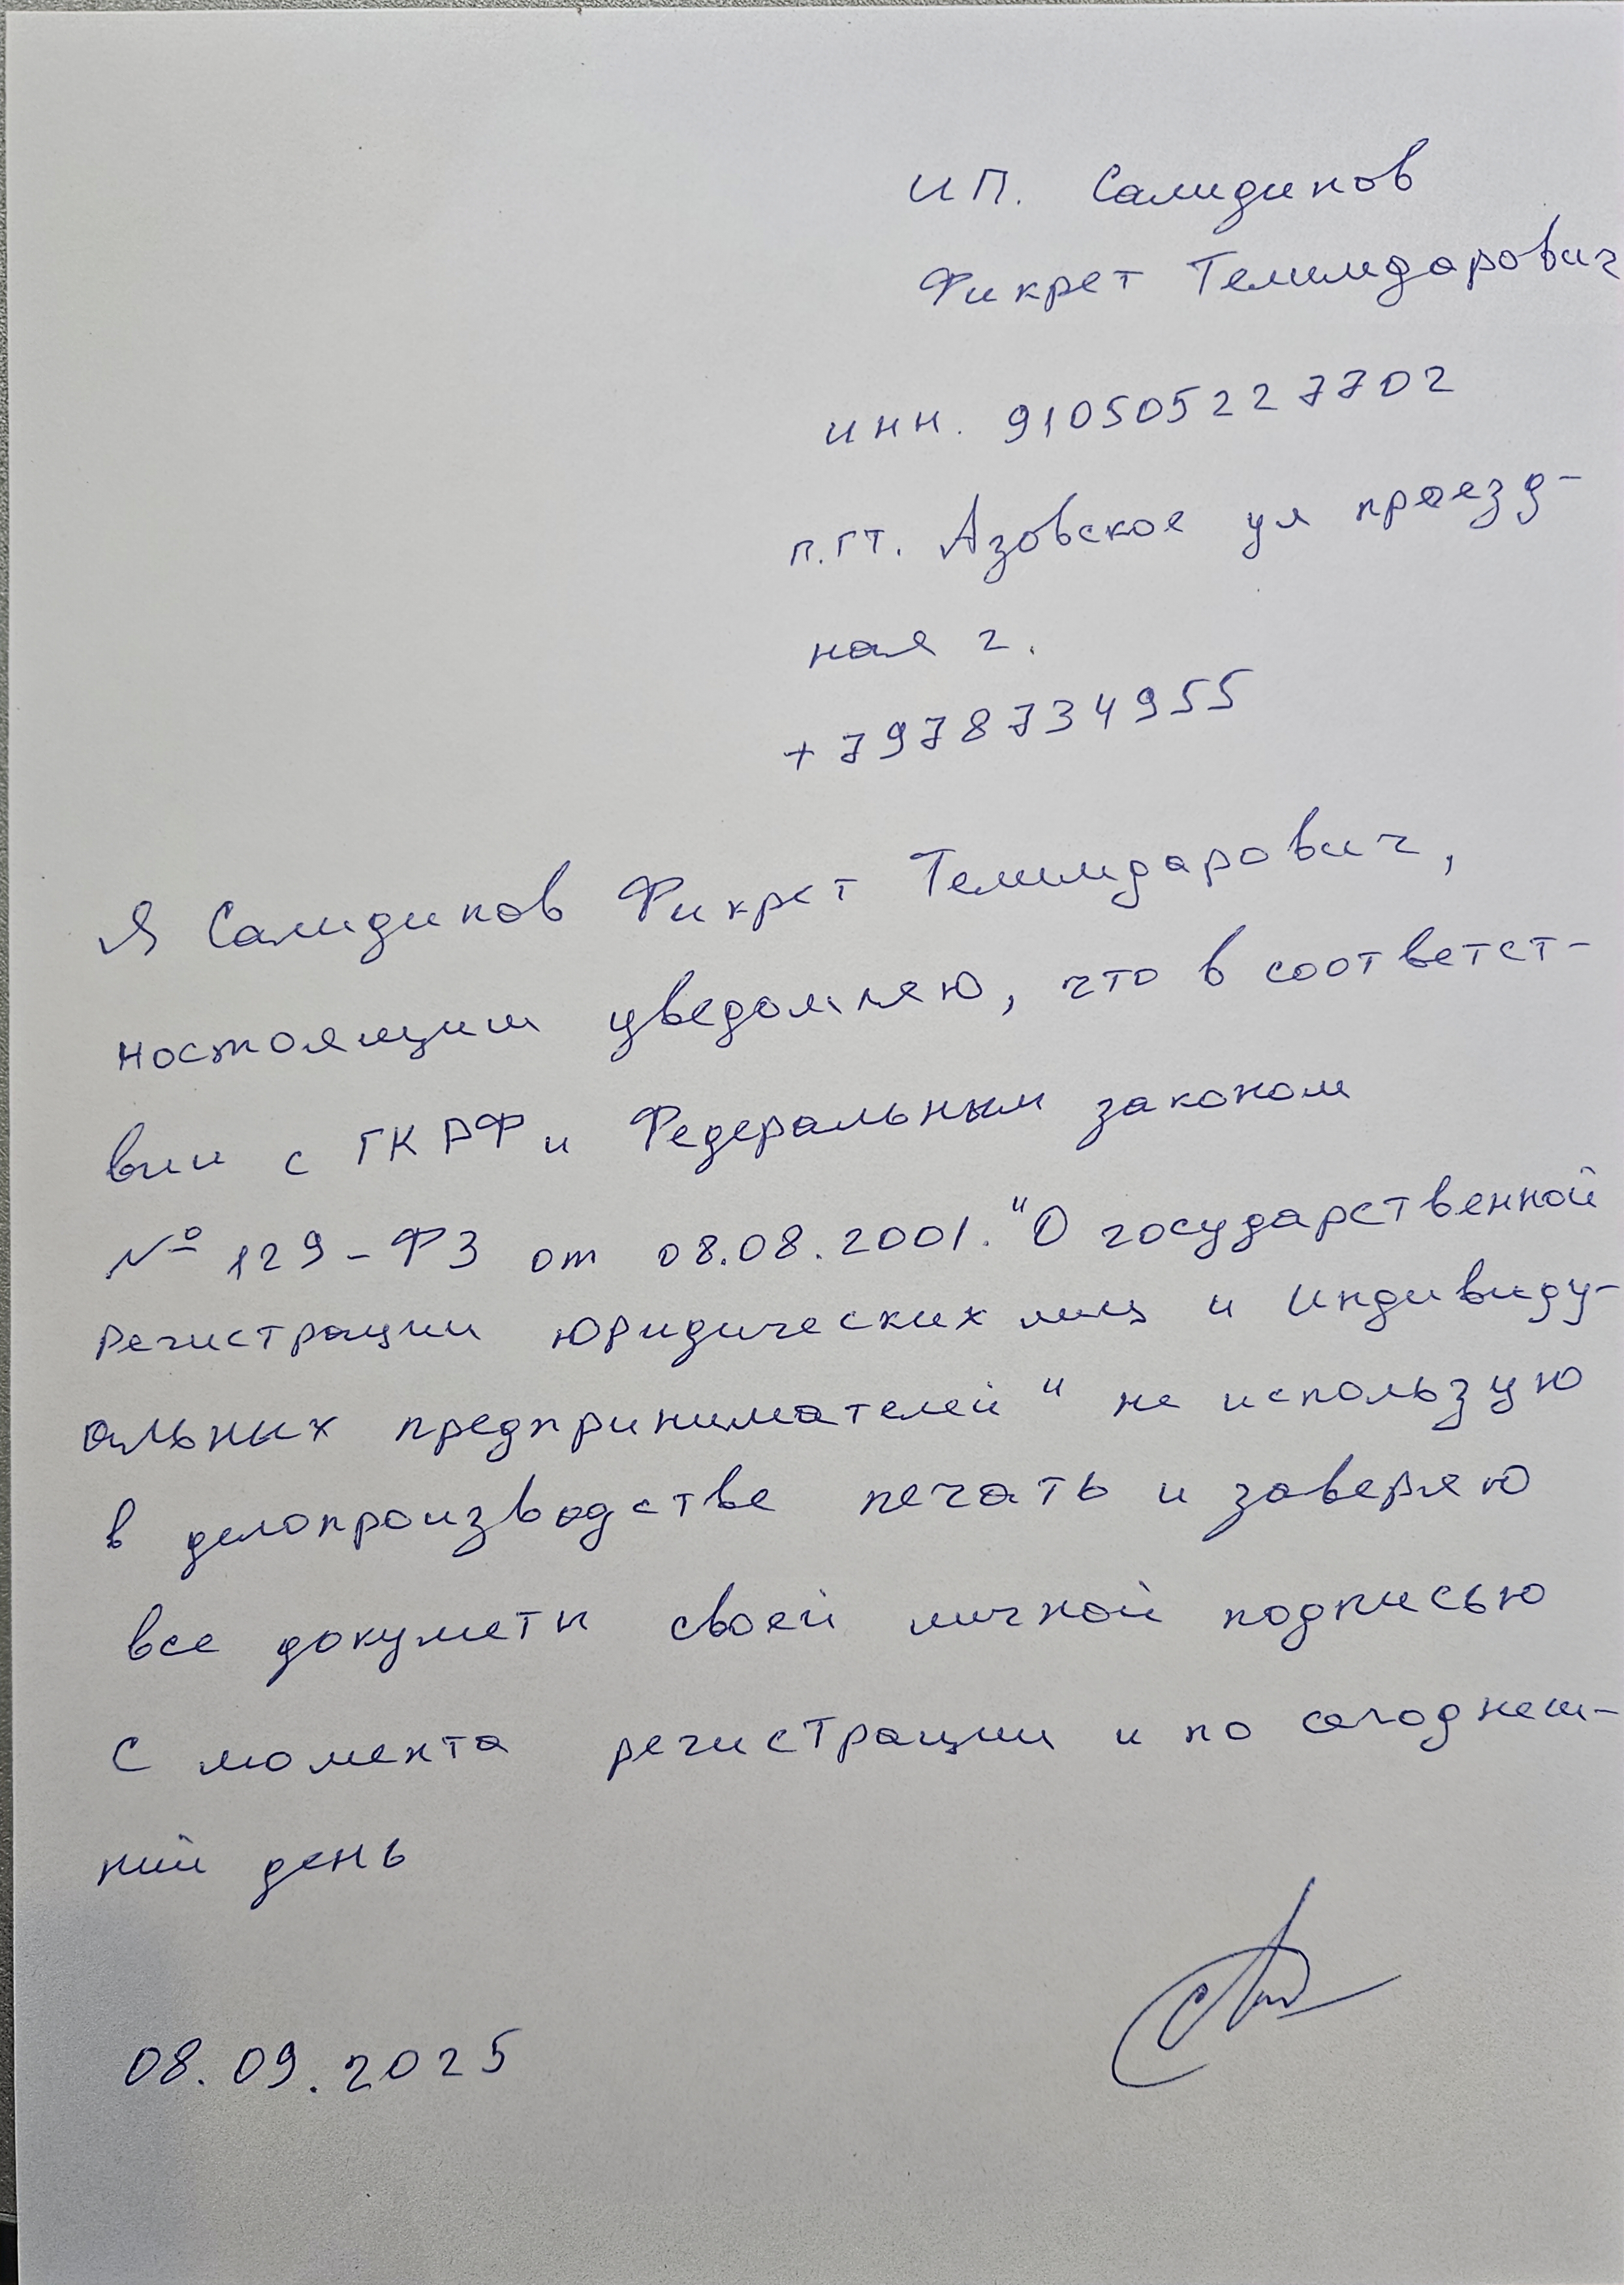 ИП. Салидинов
Фикрет Темимдарович
ИНН. 910505227702
п.гт. Азовское ул проезд-
ная 2.
+7978734955
Я Салидинов Фикрет Темимдарович,
настоящим уведомляю, что в соответст-
вии с ГК РФ и Федеральным законом
№ 129-ФЗ от 08.08.2001. "О государственной
регистрации юридических лиц и индивиду-
альных предпринимателей" не использую
в делопроизводстве печать и заверяю
все докуметы своей личной подписью
с момента регистрации и по сегоднеш-
ний день
08.09.2025